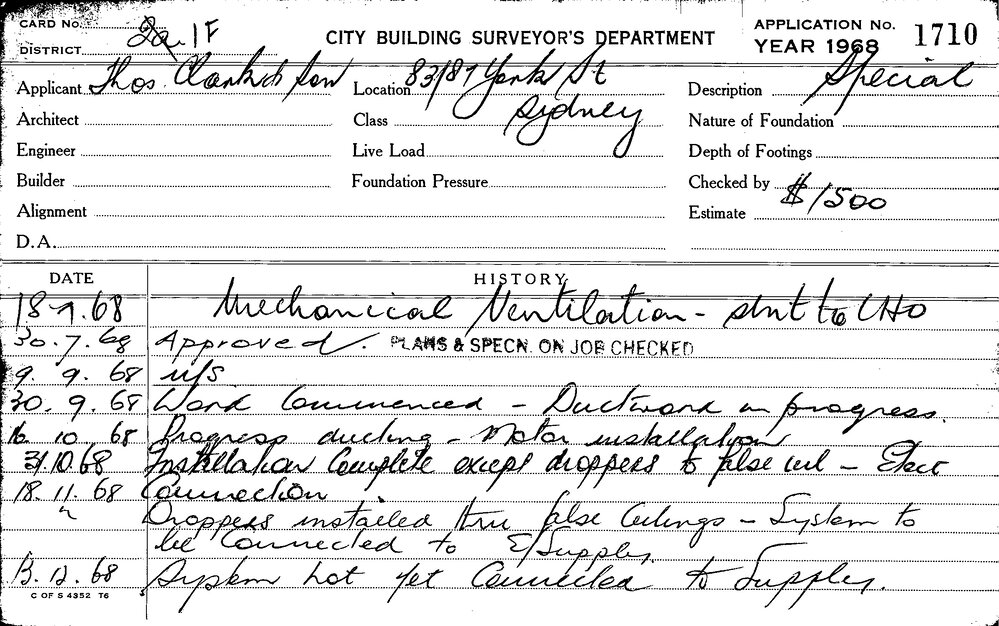 CARD No. 2a 1F
DISTRICT
CITY BUILDING SURVEYOR'S DEPARTMENT
APPLICATION No. 1710
YEAR 1968
Applicant Thos. Clark & Son
Location 83/87 York St
Sydney
Description Special
Architect
Class
Nature of Foundation
Engineer
Live Load
Depth of Footings
Builder
Foundation Pressure
Checked by
Alignment
Estimate $1500
D.A.
DATE HISTORY
18.7.68 Mechanical Ventilation - sent to CHO
30.7.68 Approved. PLANS & SPECN. ON JOB CHECKED
9.9.68 n/s
30.9.68 Work Commenced - Ductwork in progress.
16.10.68 Progress ducting - Motor installation
31.10.68 Installation Complete except droppers to false ceil - Elect
Connection
18.11.68 Droppers installed thru false Ceilings - System to
be Connected to E/Supply.
12.68 System not yet Connected to Supply.
C OF S 4352 T6